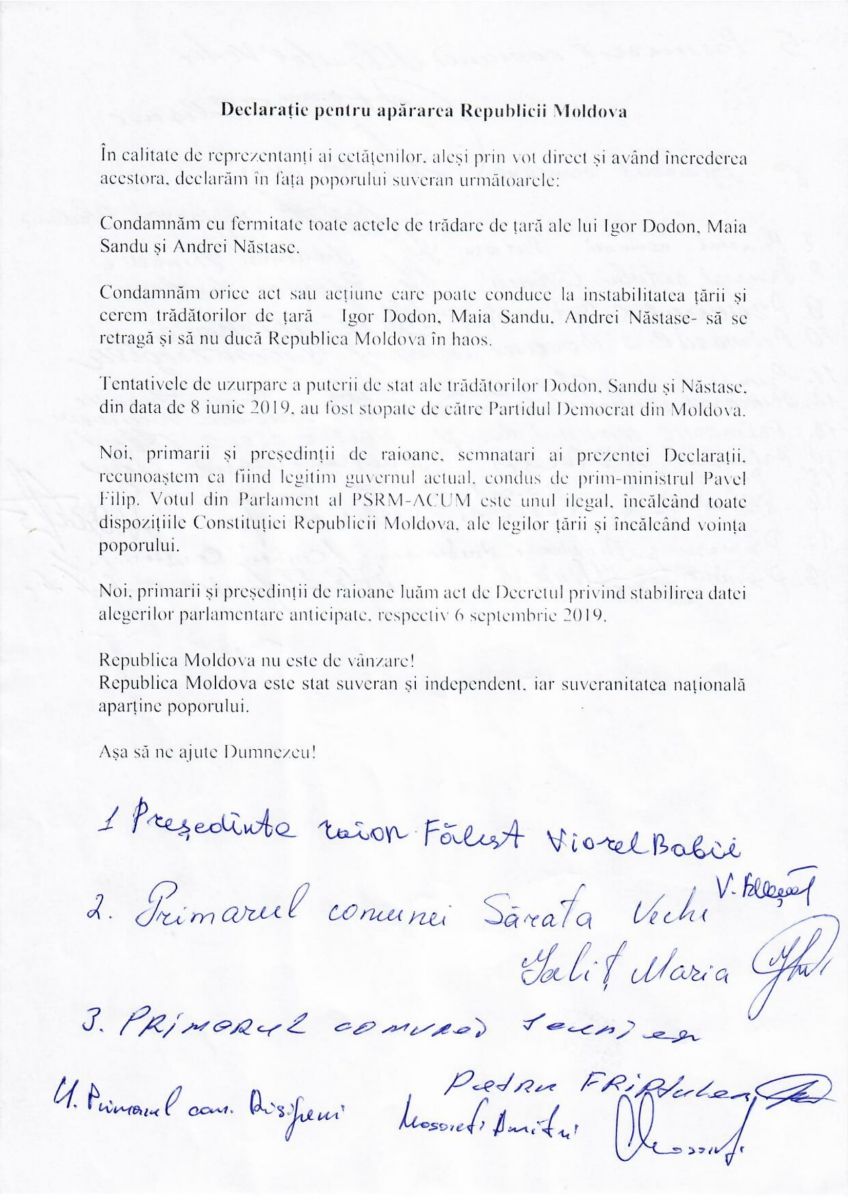 Declarație pentru apărarea Republicii Moldova
În calitate de reprezentanți ai cetățenilor, aleși prin vot direct și având încrederea
acestora, declarăm în fața poporului suveran următoarele:
Condamnăm cu fermitate toate actele de trădare de țară ale lui Igor Dodon, Maia
Sandu și Andrei Năstase.
Condamnăm orice act sau acțiune care poate conduce la instabilitatea țării și
cerem trădătorilor de țară - Igor Dodon, Maia Sandu, Andrei Năstase- să se
retragă și să nu ducă Republica Moldova în haos.
Tentativele de uzurpare a puterii de stat ale trădătorilor Dodon, Sandu și Năstase,
din data de 8 iunie 2019, au fost stopate de către Partidul Democrat din Moldova.
Noi, primarii și președinții de raioane, semnatari ai prezentei Declarații,
recunoaștem ca fiind legitim guvernul actual, condus de prim-ministrul Pavel
Filip. Votul din Parlament al PSRM-ACUM este unul ilegal, încălcând toate
dispozițiile Constituției Republicii Moldova, ale legilor țării și încălcând voința
poporului.
Noi, primarii și președinții de raioane luăm act de Decretul privind stabilirea datei
alegerilor parlamentare anticipate, respectiv 6 septembrie 2019.
Republica Moldova nu este de vânzare!
Republica Moldova este stat suveran și independent, iar suveranitatea națională
aparține poporului.
Așa să ne ajute Dumnezeu!
1 Președinte raion Făleșt Viorel Babii
2. Primarul comunei Sărata Veche
Galiț Maria
3. PRIMARUL comunei
Pietru
4. Primarul com. Risipeni